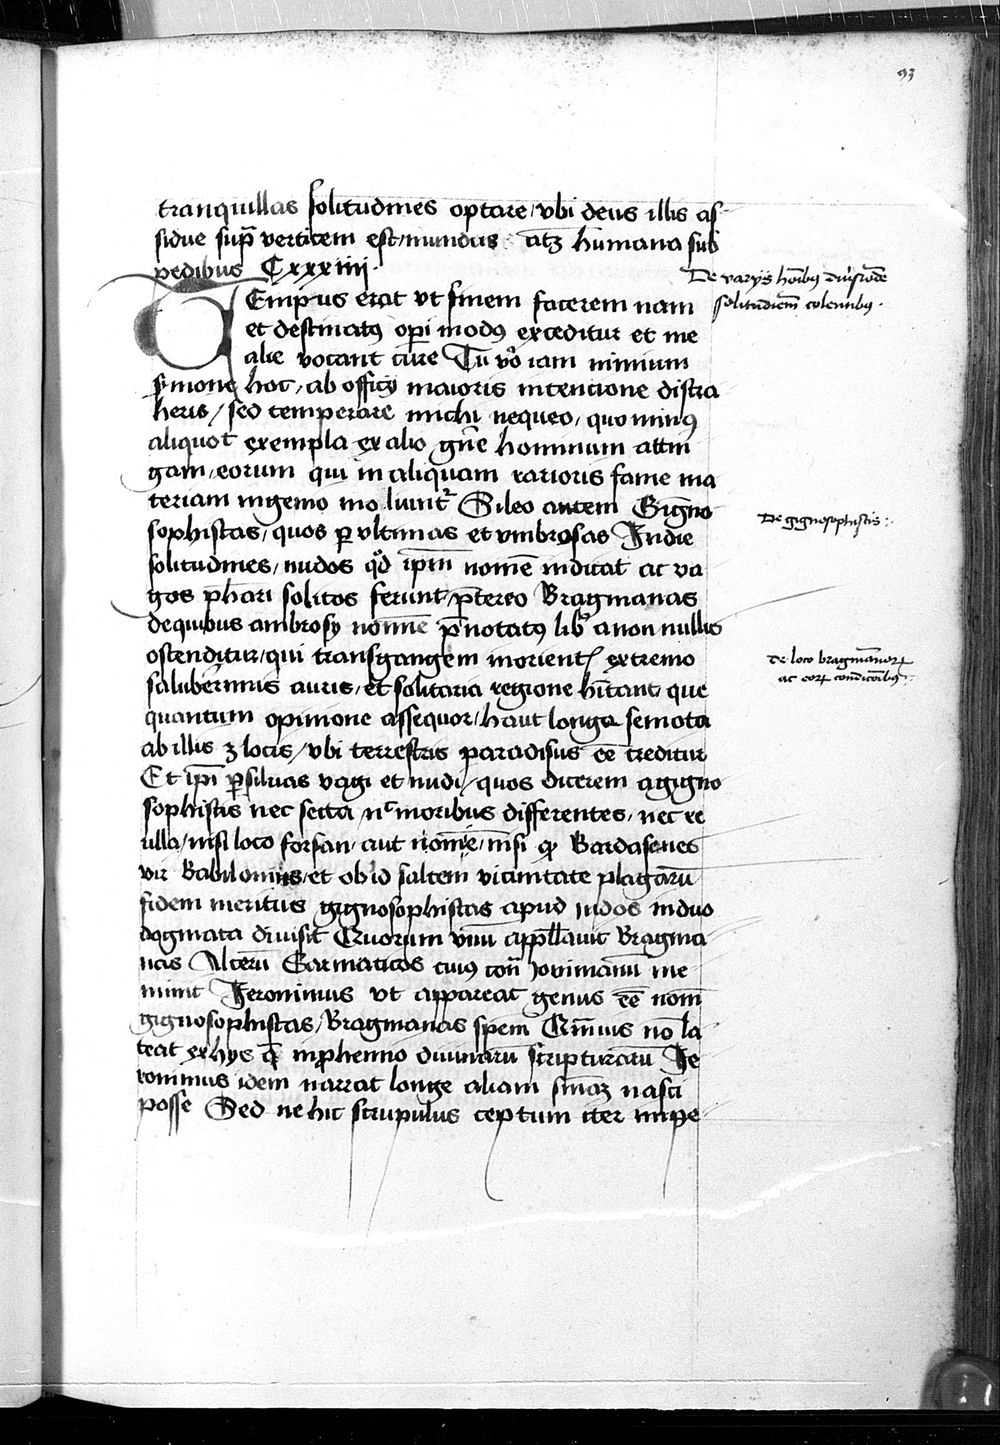 93
tranquillas solitudines optare / vbi deus illis as
sidue sup̄ verticem est / mundus atqꝫ humana sub
pedibus Cxxxiiij·
De varijs hoībus diuͥsimode
solitudinem̄ colentibus ·
TEmpus erat vt finem facerem nam
et destinatꝰ operi modꝰ exceditur et me
alie vocant cure Tu vͦo iam nimium
sͥmone hoc / ab officij maioris intencione distra
heris / sed temperare michi nequeo / quo minꝰ
aliquot exempla ex alio gn̄e hominum attin
gam / eorum qui in aliquam rarioris fame ma
teriam ingenio moliunt᷑ Sileo autem Gigno
sophistas / quos ꝑ vltimas et vmbrosas Indie
De gignosophistis :
solitudines / nudos qͦd ip̄m nomē indicat ac va
gos ph̄ari solitos ferunt / p̄tereo Bragmanas
de quibus ambrosij nomine p̄notatꝰ libͣ a non nullis
ostenditur / qui trans gangem in orientꝭ extremo
De loco bragmānorꝝ
ac eorꝝ condiciōibus :
saluberrimis auris / et solitaria regione hītant que
quantum opinione assequor / haut longe semota
ab illis ꝫ locis / vbi terrestris paradisus eē creditur
Et ip̄i ꝑ siluas vagi et nudi / quos dicerem a gigno
sophistis nec secta nᶜ moribus differentes / nec re
ulla / nisi loco forsan / aut nomīe / nisi ꝙ Bardasenes
vir Babilonius / et ob id saltem vicinitate plagarū
fidem meritus gignosophistas apud indos in duo
dogmata diuisit Quorum vnū app̄llauit Bragma
nas Alterū Sarmaticos cuiꝰ con̄ Jouimanū me
minit Jeronimus vt appareat genus eē nom̄
gignosophistas / Bragmanas spem Quīuis nō la
teat ex hys q̄ in ꝓhemio diuinarū scripturarū Je
ronimus idem narrat longe aliam sn̄iaꝫ nasci
posse Sed ne hic scrupulus ceptum iter impe